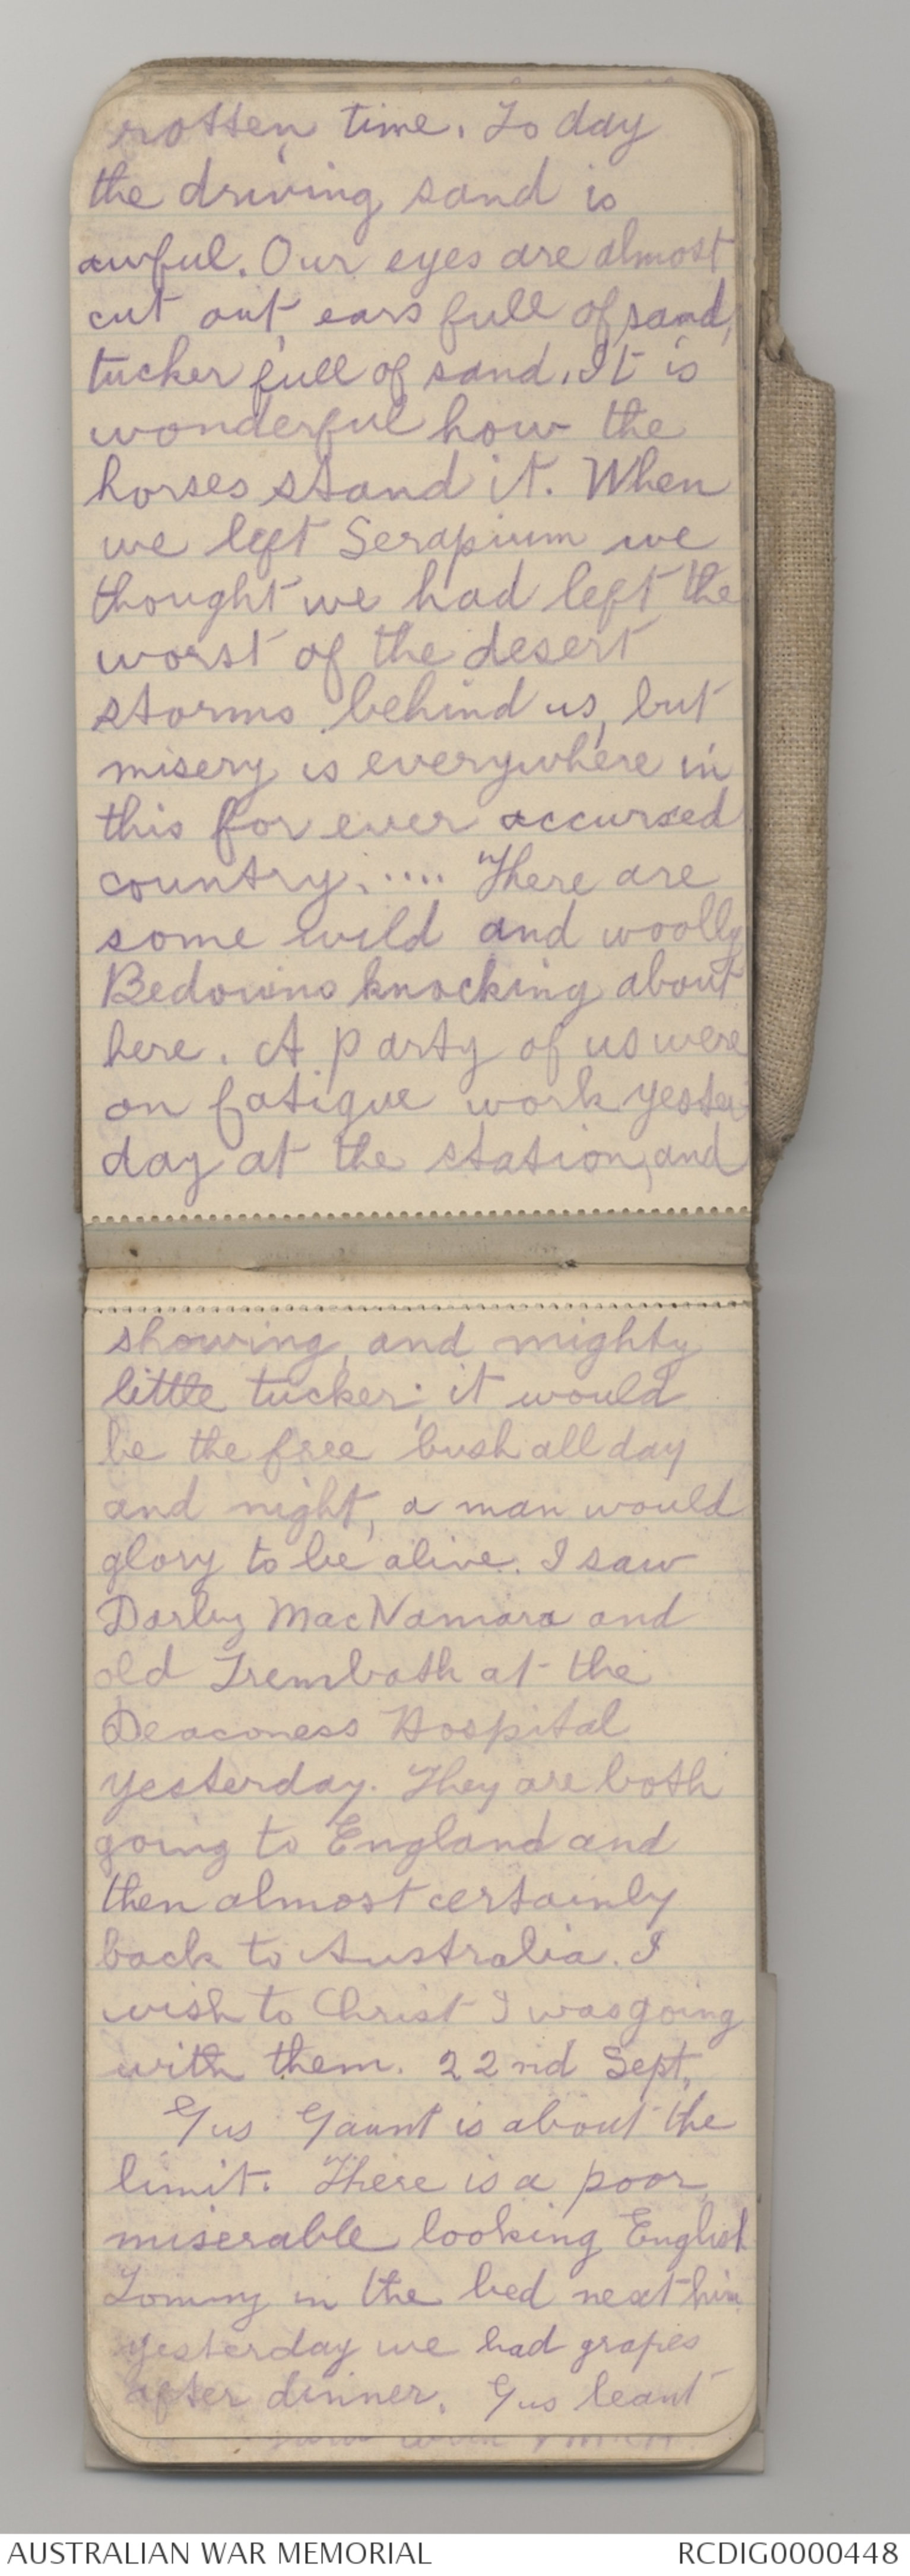 rotten time. To day
the driving sand is
awful. Our eyes are almost
cut out, ears full of sand,
tucker full of sand. It is
wonderful how the
horses stand it. When
we left Serapium we
thought we had left the
worst of the desert
storms behind us, but
misery is everywhere in
this for ever accursed
country. .... There are
some wild and woolly
Bedouins knocking about
here. A party of us were
on fatigue work yester
day at the station, and
showing, and mighty
little tucker; it would
be the free bush all day
and night, a man would
glory to be alive. I saw
Darby MacNamara and
old Trembath at the
Deaconess Hospital
yesterday. They are both
going to England and
then almost certainly
back to Australia. I
wish to Christ I was going
with them. 22nd Sept,
Gus Gaunt is about the
limit. There is a poor,
miserable looking English
Tommy in the bed next him
yesterday we had grapes
after dinner. Gus leant
AUSTRALIAN WAR MEMORIAL
RCDIG0000448